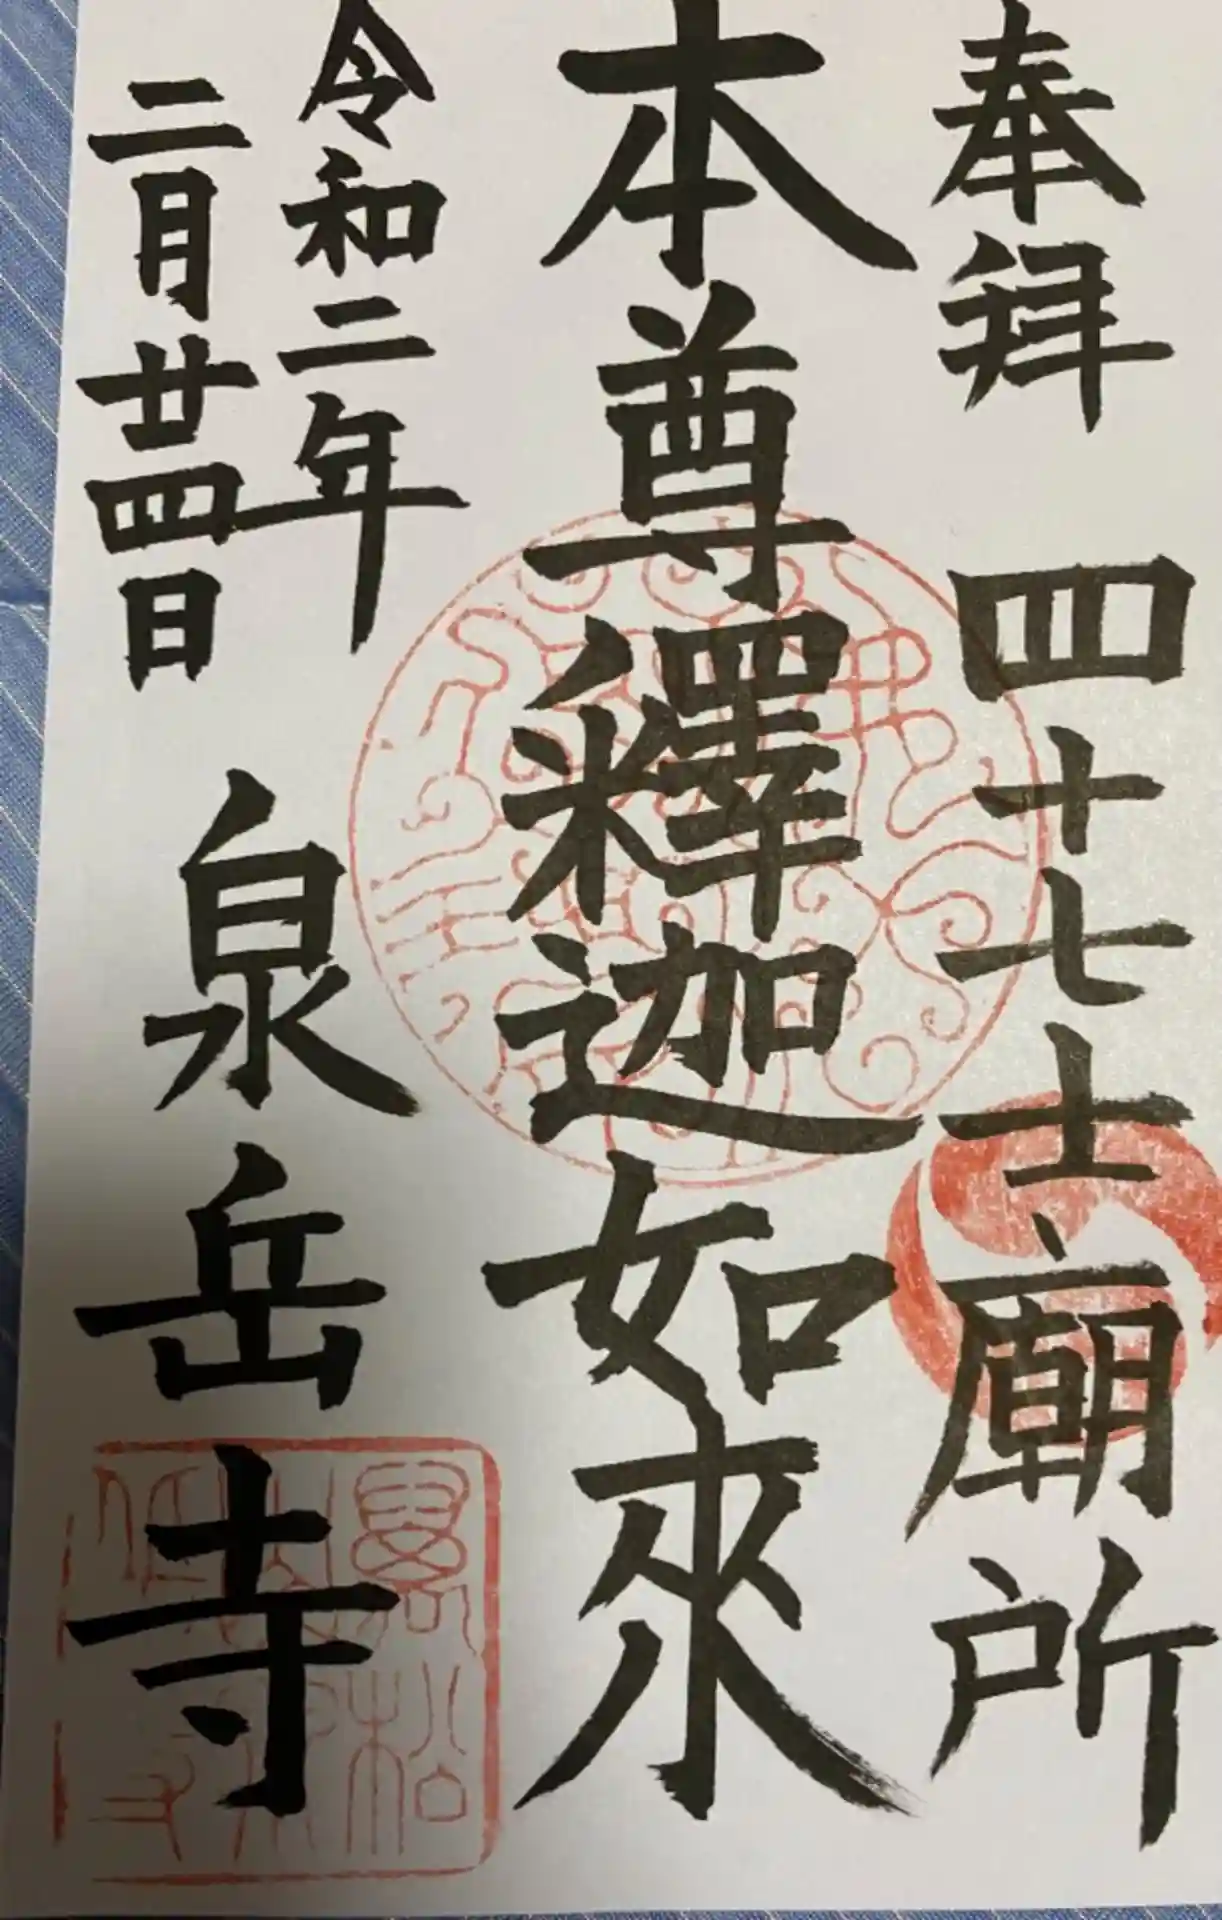 奉拝 四十七士廟所
本尊釋迦如來
令和二年
二月廿四日
泉岳寺